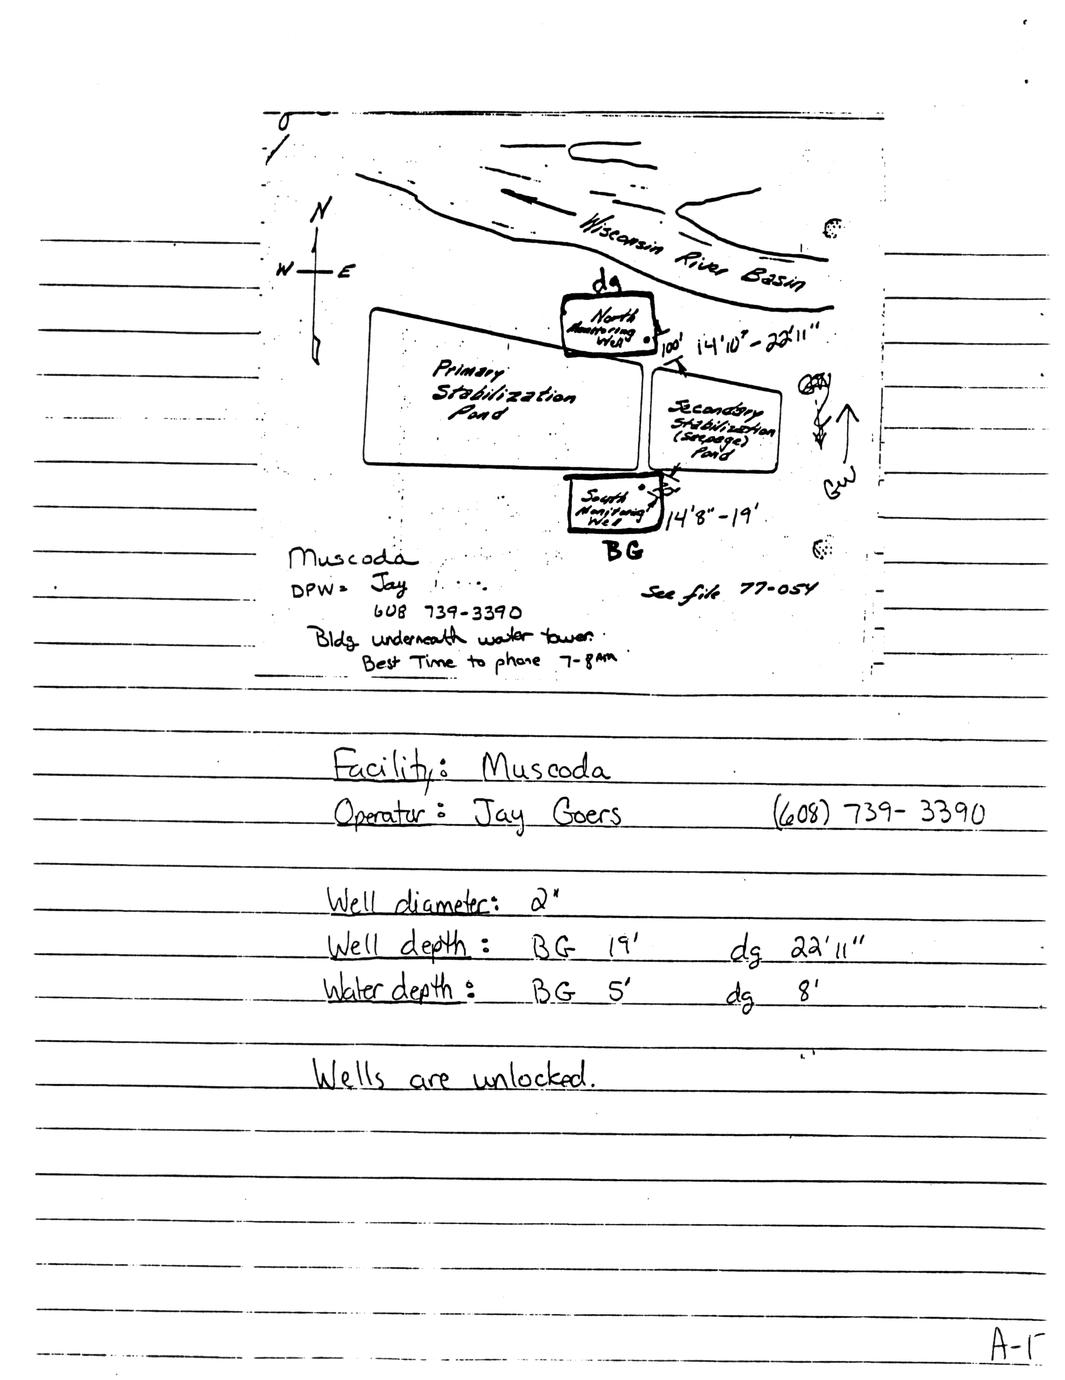 N
W E
Wisconsin River Basin
dg
North
Monitoring
Well
100'
14'10" - 22'11"
Primary
Stabilization
Pond
Secondary
Stabilization
(seepage)
Pond
GW
GW
South
Monitoring
Well
14'8" - 19'
BG
Muscoda
DPW = Jay
608 739-3390
Bldg underneath water tower.
Best Time to phone 7-8 AM
See file 77-054
Facility: Muscoda
Operator: Jay Goers (608) 739-3390
Well diameter: 2"
Well depth: BG 19' dg 22'11"
Water depth: BG 5' dg 8'
Wells are unlocked.